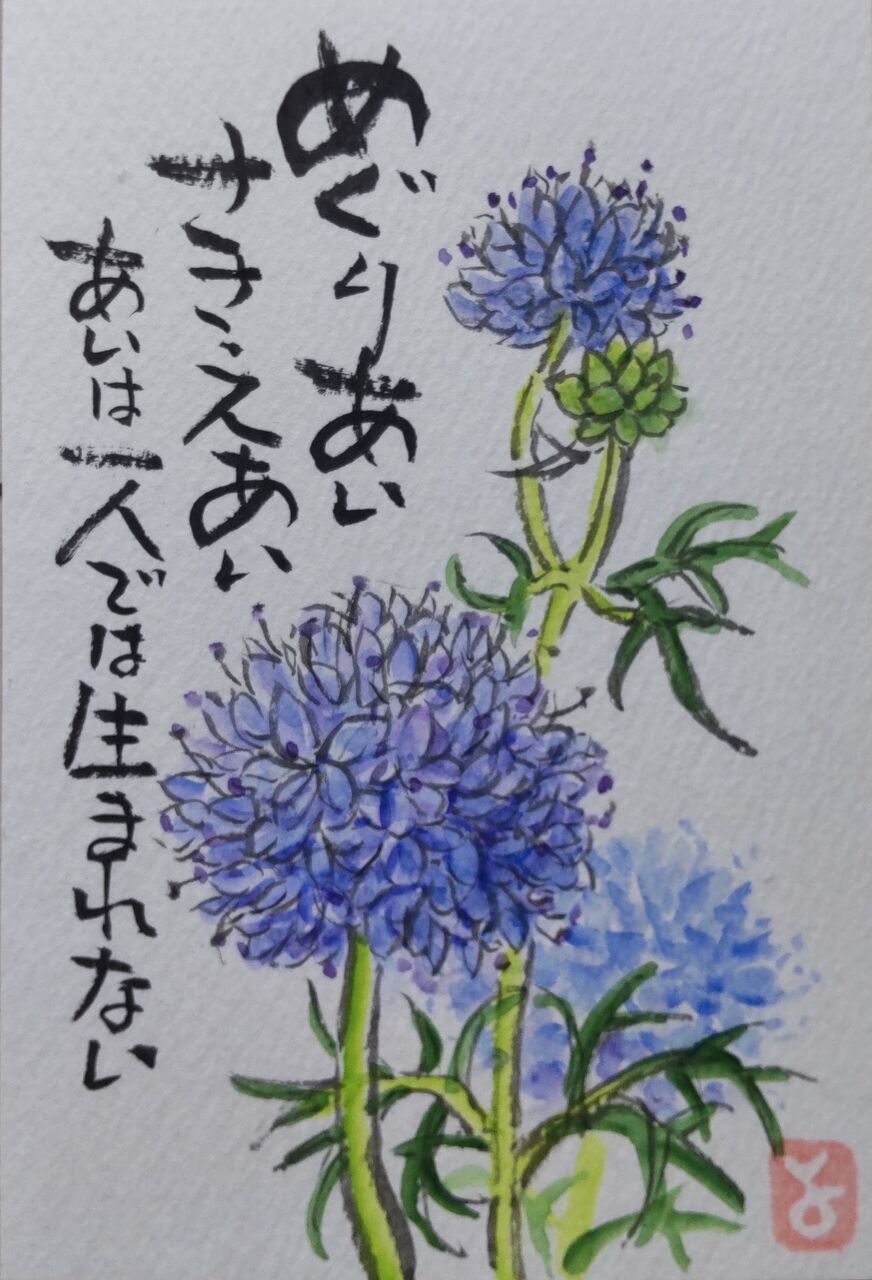 めぐりあい
ささえあい
あいは一人では生まれない